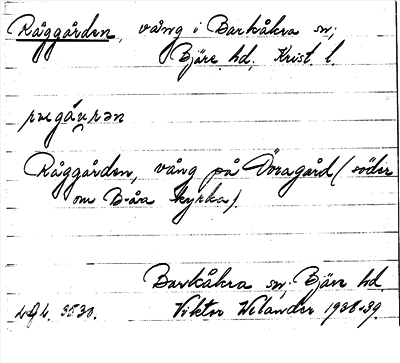 Råggården, vång i Barkåkra sn;
Bjäre hd; Krist. l.
Råggården, vång på Öragård (söder
om B-åra kyrka).
Barkåkra sn; Bjäre hd.
Viktor Welander 1938-39.